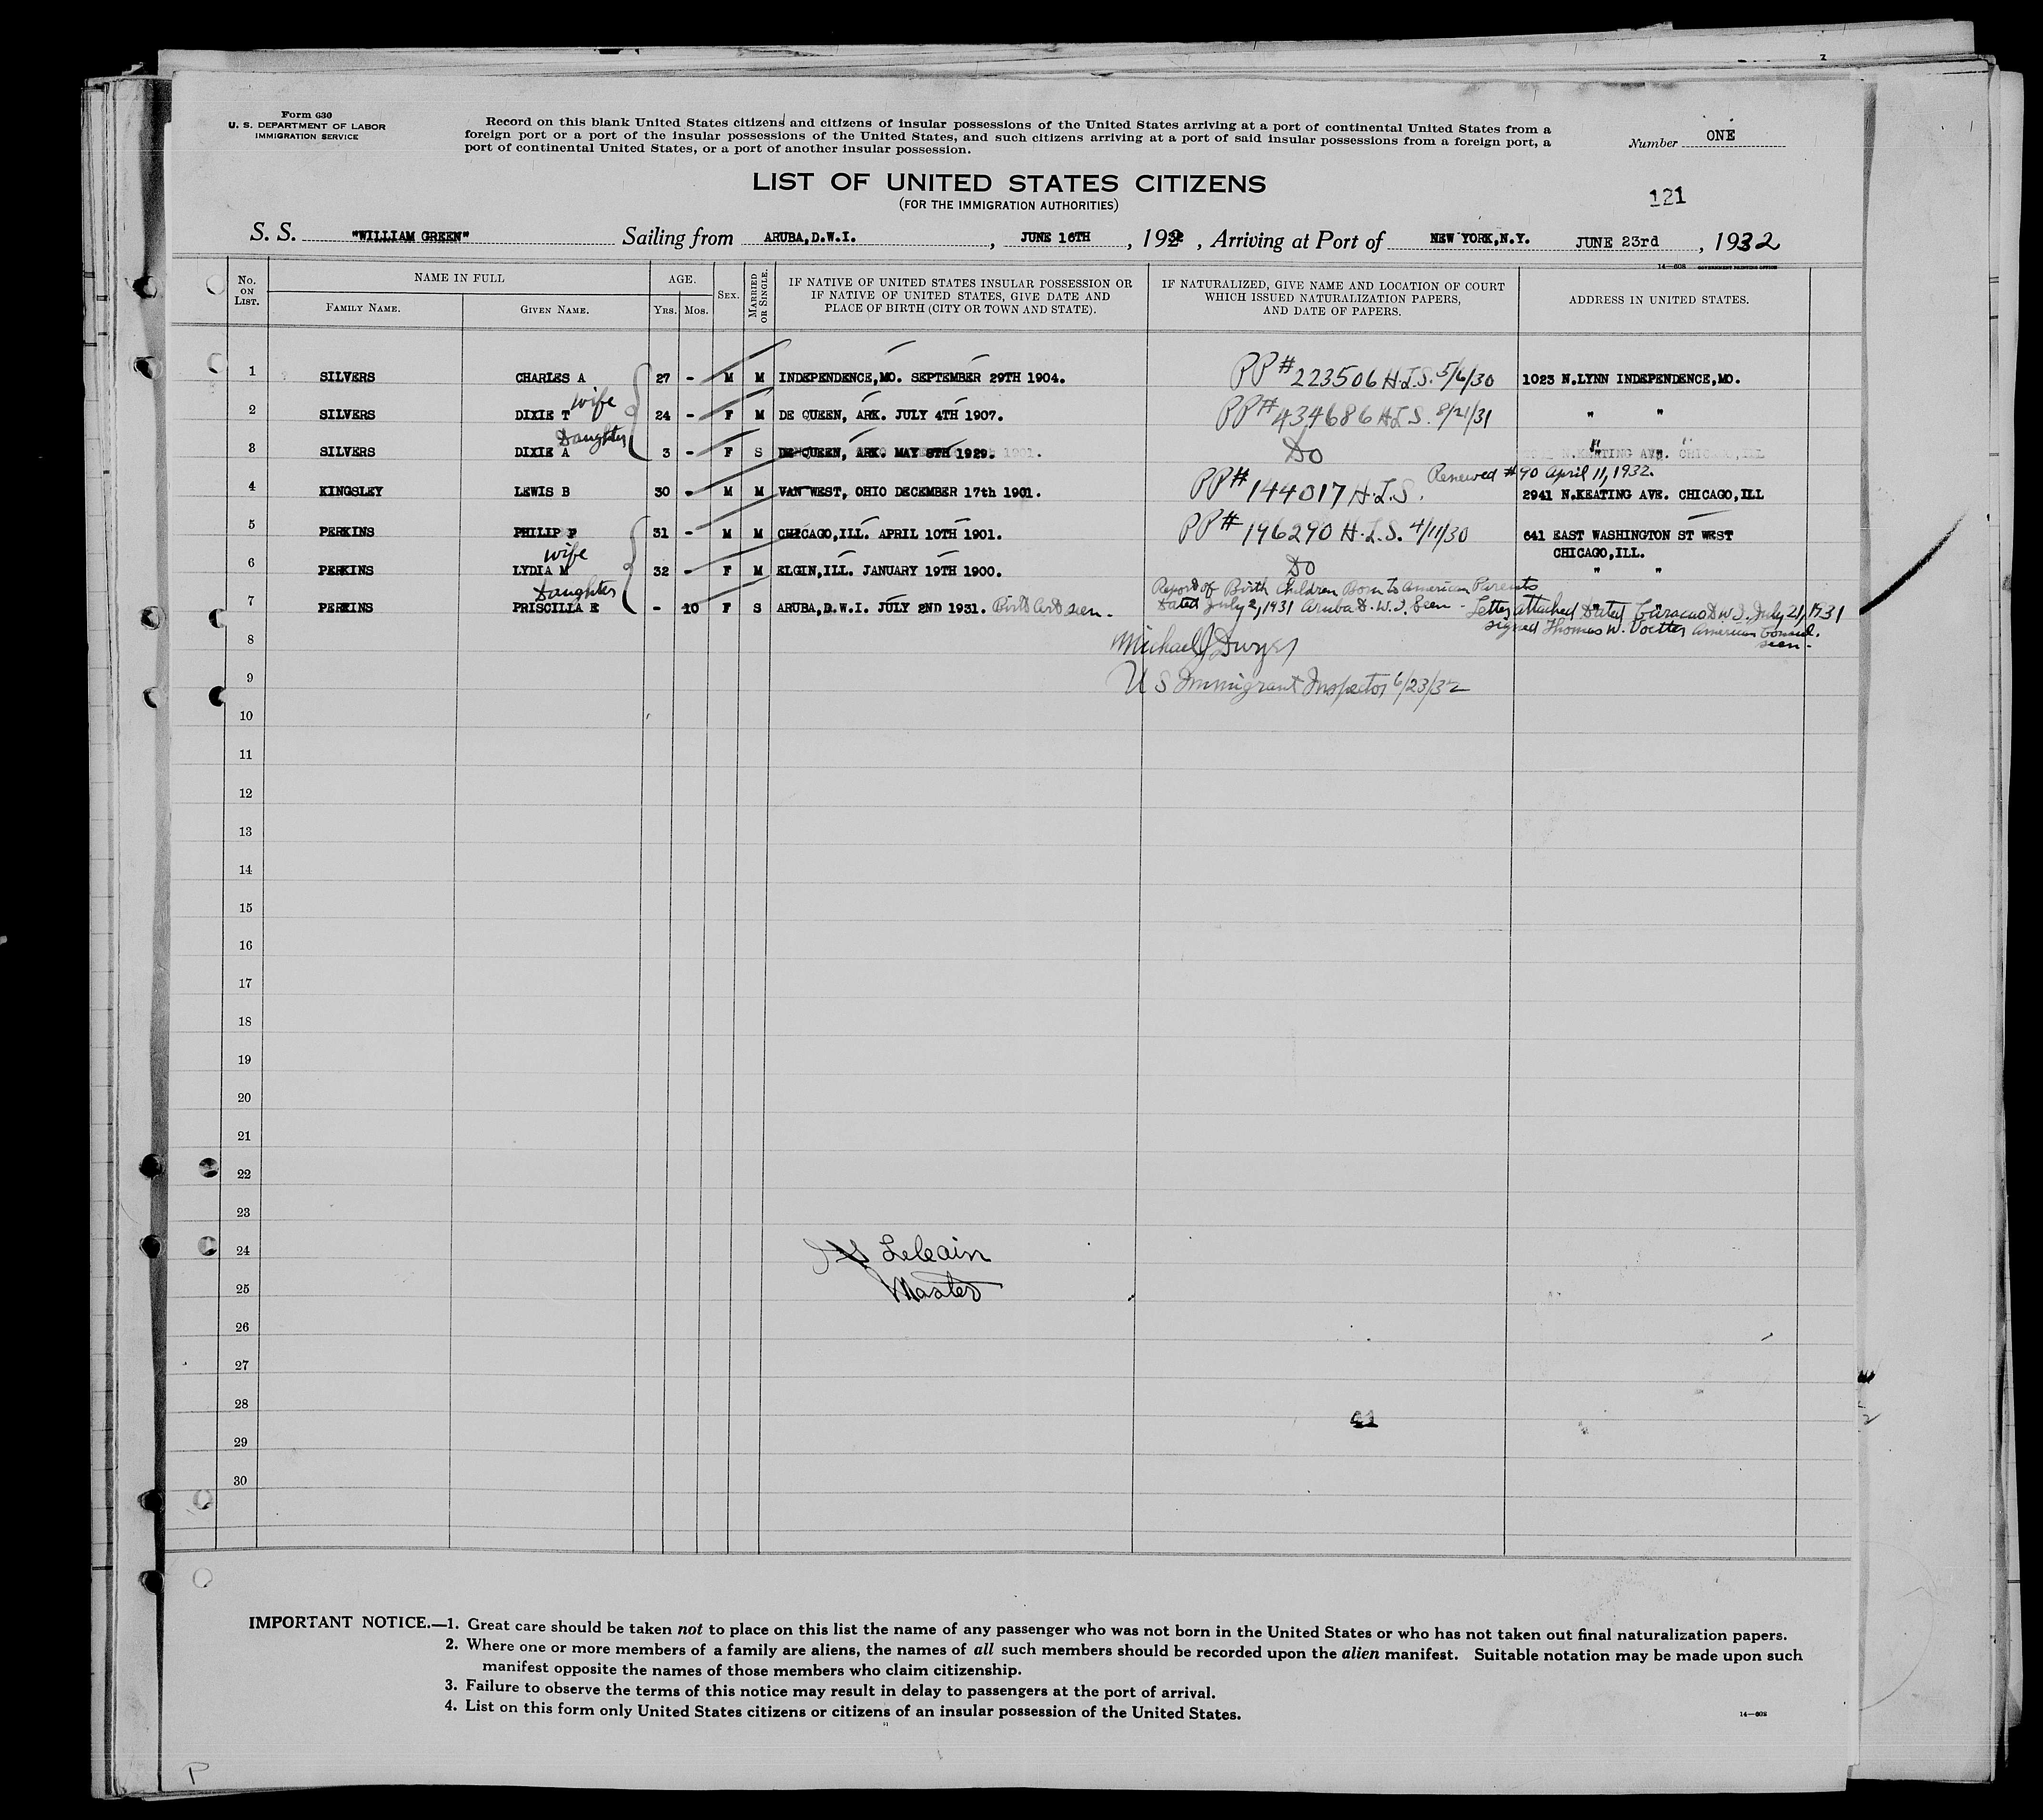 Form 630
U. S. DEPARTMENT OF LABOR
IMMIGRATION SERVICE
Record on this blank United States citizens and citizens of insular possessions of the United States arriving at a port of continental United States from a
foreign port or a port of the insular possessions of the United States, and such citizens arriving at a port of said insular possessions from a foreign port, a
port of continental United States, or a port of another insular possession.
Number ONE
LIST OF UNITED STATES CITIZENS
(FOR THE IMMIGRATION AUTHORITIES)
121
S. S. "WILLIAM GREEN" Sailing from ARUBA,D.W.I. , JUNE 16TH , 192 , Arriving at Port of NEW YORK,N.Y. JUNE 23rd , 1932
14—608 GOVERNMENT PRINTING OFFICE
No. ON LIST. NAME IN FULL AGE. SEX. MARRIED OR SINGLE. IF NATIVE OF UNITED STATES INSULAR POSSESSION OR IF NATIVE OF UNITED STATES, GIVE DATE AND PLACE OF BIRTH (CITY OR TOWN AND STATE). IF NATURALIZED, GIVE NAME AND LOCATION OF COURT WHICH ISSUED NATURALIZATION PAPERS, AND DATE OF PAPERS. ADDRESS IN UNITED STATES.
FAMILY NAME. GIVEN NAME. Yrs. Mos.
1 SILVERS CHARLES A 27 - M M INDEPENDENCE,MO. SEPTEMBER 29TH 1904. PP# 223506 H.I.S. 5/6/30 1023 N.LYNN INDEPENDENCE,MO.
wife
2 SILVERS DIXIE T 24 - F M DE QUEEN, ARK. JULY 4TH 1907. PP# 434686 H.I.S. 8/21/31 " "
Daughter
3 SILVERS DIXIE A 3 - F S DE QUEEN, ARK. MAY 8TH 1929. DO " "
Renewed #90 April 11, 1932.
4 KINGSLEY LEWIS B 30 - M M VAN WEST, OHIO DECEMBER 17th 1901. PP# 144017 H.I.S. 2941 N.KEATING AVE. CHICAGO,ILL
5 PERKINS PHILIP P 31 - M M CHICAGO,ILL. APRIL 10TH 1901. PP# 196290 H.I.S. 4/11/30 641 EAST WASHINGTON ST WEST
CHICAGO,ILL.
wife
6 PERKINS LYDIA M 32 - F M ELGIN,ILL. JANUARY 19TH 1900. DO " "
Daughter
Report of Birth Children Born to American Parents
7 PERKINS PRISCILLA E - 10 F S ARUBA,D.W.I. JULY 2ND 1931. Birth Cert seen. Dated July 2, 1931 Aruba D.W.I. Seen - Letter attached Dated Curacao D.W.I. July 21, 1931
signed Thomas W. Voetter American Consul.
seen.
8 Michael J Dwyer
9 U S Immigrant Inspector 6/23/32
10
11
12
13
14
15
16
17
18
19
20
21
22
23
24
25 Master
26
27
28
41
29
30
IMPORTANT NOTICE.—1. Great care should be taken not to place on this list the name of any passenger who was not born in the United States or who has not taken out final naturalization papers.
2. Where one or more members of a family are aliens, the names of all such members should be recorded upon the alien manifest. Suitable notation may be made upon such
manifest opposite the names of those members who claim citizenship.
3. Failure to observe the terms of this notice may result in delay to passengers at the port of arrival.
4. List on this form only United States citizens or citizens of an insular possession of the United States.
14—608
P